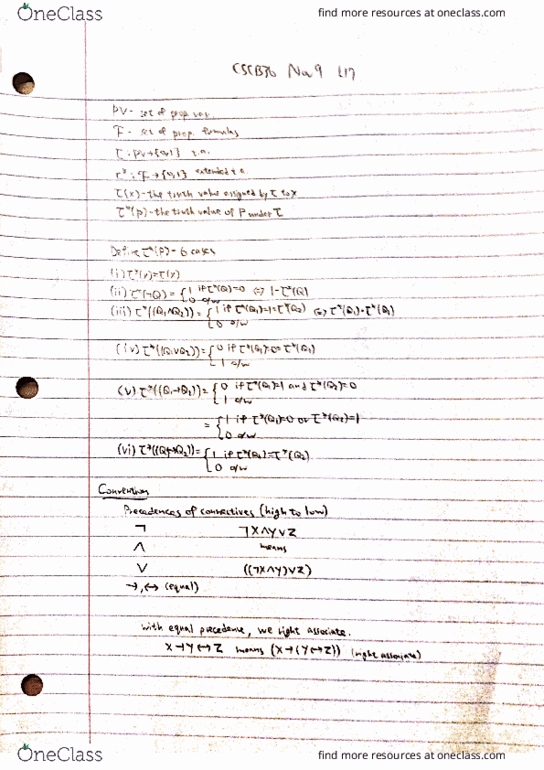 OneClass find more resources at oneclass.com
CSCB36 Nov 9 L17
PV - set of prop. var.
F - set of prop. formulas
τ: PV→{0,1} t.a.
τ*: F→{0,1} extended t.a.
τ(x) - the truth value assigned by τ to x
τ*(P) - the truth value of P under τ
Define τ*(P) - 6 cases
(i) τ*(x)=τ(x)
(ii) τ*(¬Q) = {1 if τ*(Q)=0 ⇔ 1-τ*(Q)
0 o/w
(iii) τ*((Q₁∧Q₂)) = {1 if τ*(Q₁)=1=τ*(Q₂) ⇔ τ*(Q₁)·τ*(Q₂)
0 o/w
(iv) τ*((Q₁∨Q₂)) = {0 if τ*(Q₁)=0=τ*(Q₂)
1 o/w
(v) τ*((Q₁→Q₂)) = {0 if τ*(Q₁)=1 and τ*(Q₂)=0
1 o/w
= {1 if τ*(Q₁)=0 or τ*(Q₂)=1
0 o/w
(vi) τ*((Q₁↔Q₂)) = {1 if τ*(Q₁)=τ*(Q₂)
0 o/w
Convention
Precedences of connectives (high to low)
¬ ¬X∧Y∨Z
∧ means
∨ ((¬X∧Y)∨Z)
→,↔ (equal)
with equal precedence, we right associate.
X→Y↔Z means (X→(Y↔Z)) (right associate)
OneClass find more resources at oneclass.com